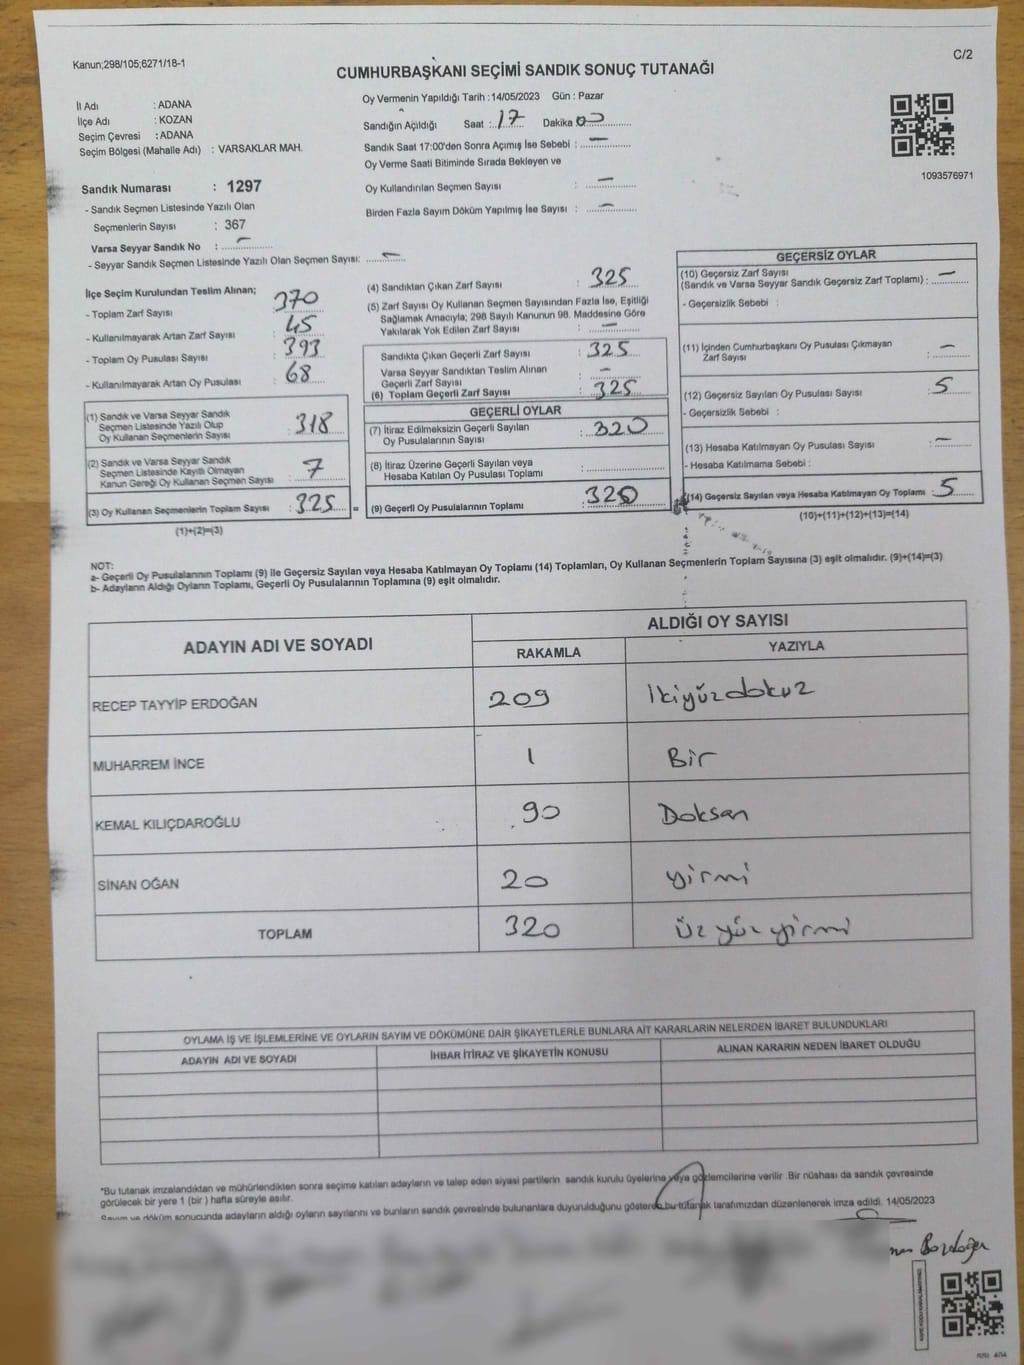 Kanun;298/105;6271/18-1
C/2
CUMHURBAŞKANI SEÇİMİ SANDIK SONUÇ TUTANAĞI
İl Adı : ADANA
İlçe Adı : KOZAN
Seçim Çevresi : ADANA
Seçim Bölgesi (Mahalle Adı) : VARSAKLAR MAH.
Oy Vermenin Yapıldığı Tarih : 14/05/2023 Gün : Pazar
Sandığın Açıldığı Saat : 17 Dakika 00
Sandık Saat 17:00'den Sonra Açımış İse Sebebi : —
Oy Verme Saati Bitiminde Sırada Bekleyen ve
Oy Kullandırılan Seçmen Sayısı : —
Birden Fazla Sayım Döküm Yapılmış İse Sayısı : —
1093576971
Sandık Numarası : 1297
- Sandık Seçmen Listesinde Yazılı Olan
Seçmenlerin Sayısı : 367
Varsa Seyyar Sandık No : —
- Seyyar Sandık Seçmen Listesinde Yazılı Olan Seçmen Sayısı: —
İlçe Seçim Kurulundan Teslim Alınan;
- Toplam Zarf Sayısı : 370
- Kullanılmayarak Artan Zarf Sayısı : 45
- Toplam Oy Pusulası Sayısı : 393
- Kullanılmayarak Artan Oy Pusulası : 68
(1) Sandık ve Varsa Seyyar Sandık
Seçmen Listesinde Yazılı Olup
Oy Kullanan Seçmenlerin Sayısı : 318
(2) Sandık ve Varsa Seyyar Sandık
Seçmen Listesinde Kayıtlı Olmayan
Kanun Gereği Oy Kullanan Seçmen Sayısı : 7
(3) Oy Kullanan Seçmenlerin Toplam Sayısı : 325 =
(1)+(2)=(3)
(4) Sandıktan Çıkan Zarf Sayısı : 325
(5) Zarf Sayısı Oy Kullanan Seçmen Sayısından Fazla İse, Eşitliği
Sağlamak Amacıyla; 298 Sayılı Kanunun 98. Maddesine Göre
Yakılarak Yok Edilen Zarf Sayısı : —
Sandıkta Çıkan Geçerli Zarf Sayısı : 325
Varsa Seyyar Sandıktan Teslim Alınan
Geçerli Zarf Sayısı : —
(6) Toplam Geçerli Zarf Sayısı : 325
GEÇERLİ OYLAR
(7) İtiraz Edilmeksizin Geçerli Sayılan
Oy Pusulalarının Sayısı : 320
(8) İtiraz Üzerine Geçerli Sayılan veya
Hesaba Katılan Oy Pusulası Toplamı :
(9) Geçerli Oy Pusulalarının Toplamı : 320
GEÇERSİZ OYLAR
(10) Geçersiz Zarf Sayısı
(Sandık ve Varsa Seyyar Sandık Geçersiz Zarf Toplamı) : —
- Geçersizlik Sebebi :
(11) İçinden Cumhurbaşkanı Oy Pusulası Çıkmayan
Zarf Sayısı : —
(12) Geçersiz Sayılan Oy Pusulası Sayısı : 5
- Geçersizlik Sebebi :
(13) Hesaba Katılmayan Oy Pusulası Sayısı : —
- Hesaba Katılmama Sebebi :
(14) Geçersiz Sayılan veya Hesaba Katılmayan Oy Toplamı : 5
(10)+(11)+(12)+(13)=(14)
NOT:
a- Geçerli Oy Pusulalarının Toplamı (9) ile Geçersiz Sayılan veya Hesaba Katılmayan Oy Toplamı (14) Toplamları, Oy Kullanan Seçmenlerin Toplam Sayısına (3) eşit olmalıdır. (9)+(14)=(3)
b- Adayların Aldığı Oyların Toplamı, Geçerli Oy Pusulalarının Toplamına (9) eşit olmalıdır.
ADAYIN ADI VE SOYADI ALDIĞI OY SAYISI
RAKAMLA YAZIYLA
RECEP TAYYİP ERDOĞAN 209 İkiyüzdokuz
MUHARREM İNCE 1 Bir
KEMAL KILIÇDAROĞLU 90 Doksan
SİNAN OĞAN 20 yirmi
TOPLAM 320 Üz yüz yirmi
OYLAMA İŞ VE İŞLEMLERİNE VE OYLARIN SAYIM VE DÖKÜMÜNE DAİR ŞİKAYETLERLE BUNLARA AİT KARARLARIN NELERDEN İBARET BULUNDUKLARI
ADAYIN ADI VE SOYADI İHBAR İTİRAZ VE ŞİKAYETİN KONUSU ALINAN KARARIN NEDEN İBARET OLDUĞU
*Bu tutanak imzalandıktan ve mühürlendikten sonra seçime katılan adayların ve talep eden siyasi partilerin sandık kurulu üyelerine veya gözlemcilerine verilir. Bir nüshası da sandık çevresinde
görülecek bir yere 1 (bir) hafta süreyle asılır.
Sayım ve döküm sonucunda adayların aldığı oyların sayılarını ve bunların sandık çevresinde bulunanlara duyurulduğunu gösteren bu tutanak tarafımızdan düzenlenerek imza edildi. 14/05/2023